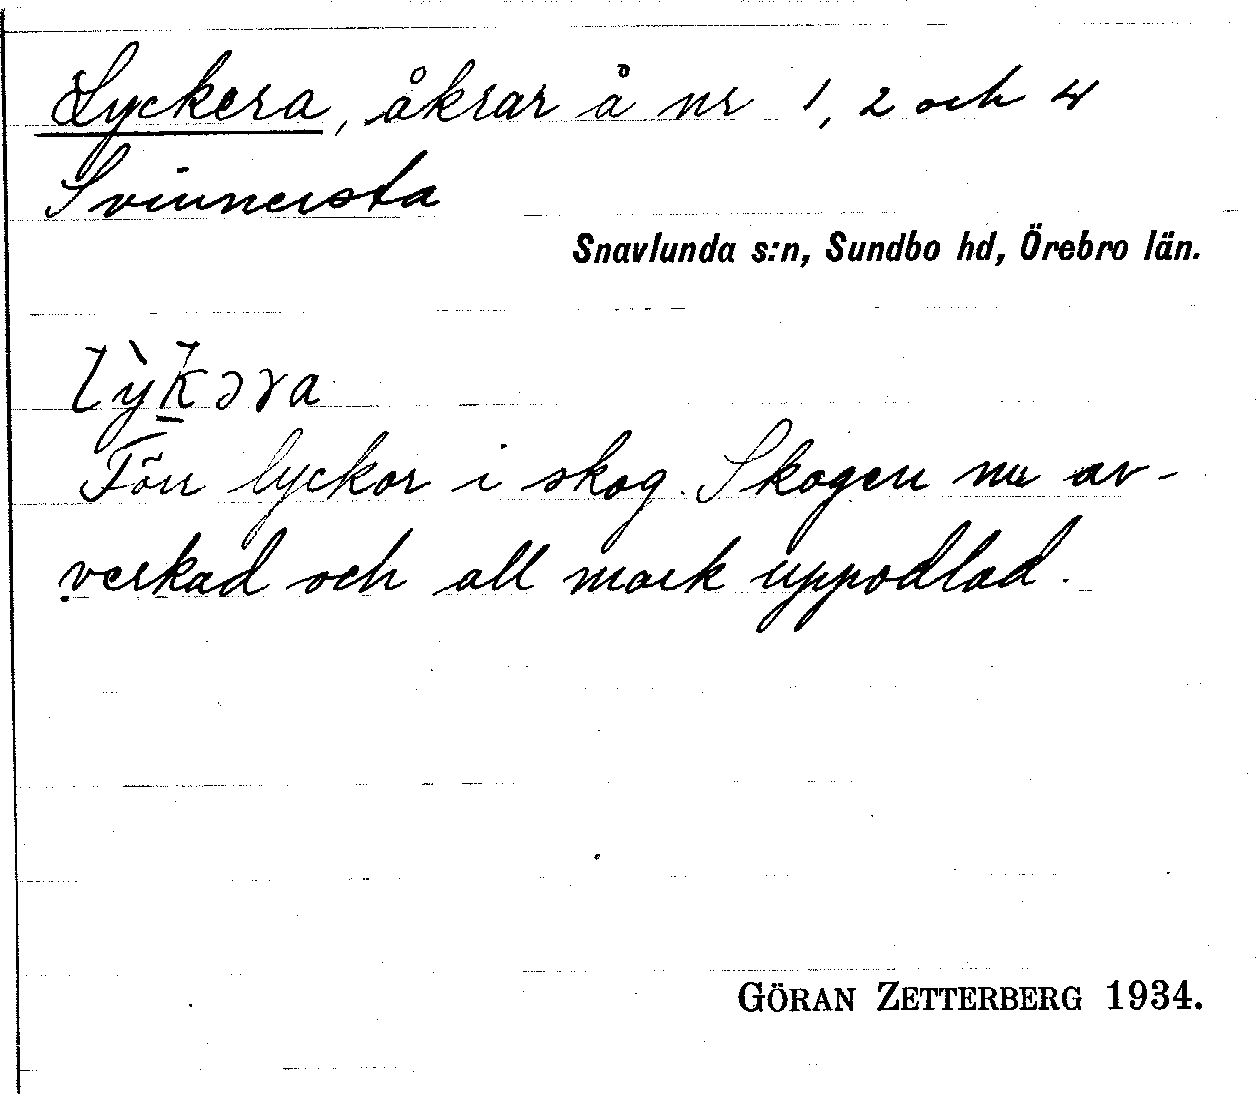 Lyckera, åkrar å nr 1, 2 och 4
Svinnersta
Snavlunda s:n, Sundbo hd, Örebro län.
lỳk̲əra
Förr lyckor i skog. Skogen nu av-
verkad och all mark uppodlad.
GÖRAN ZETTERBERG 1934.